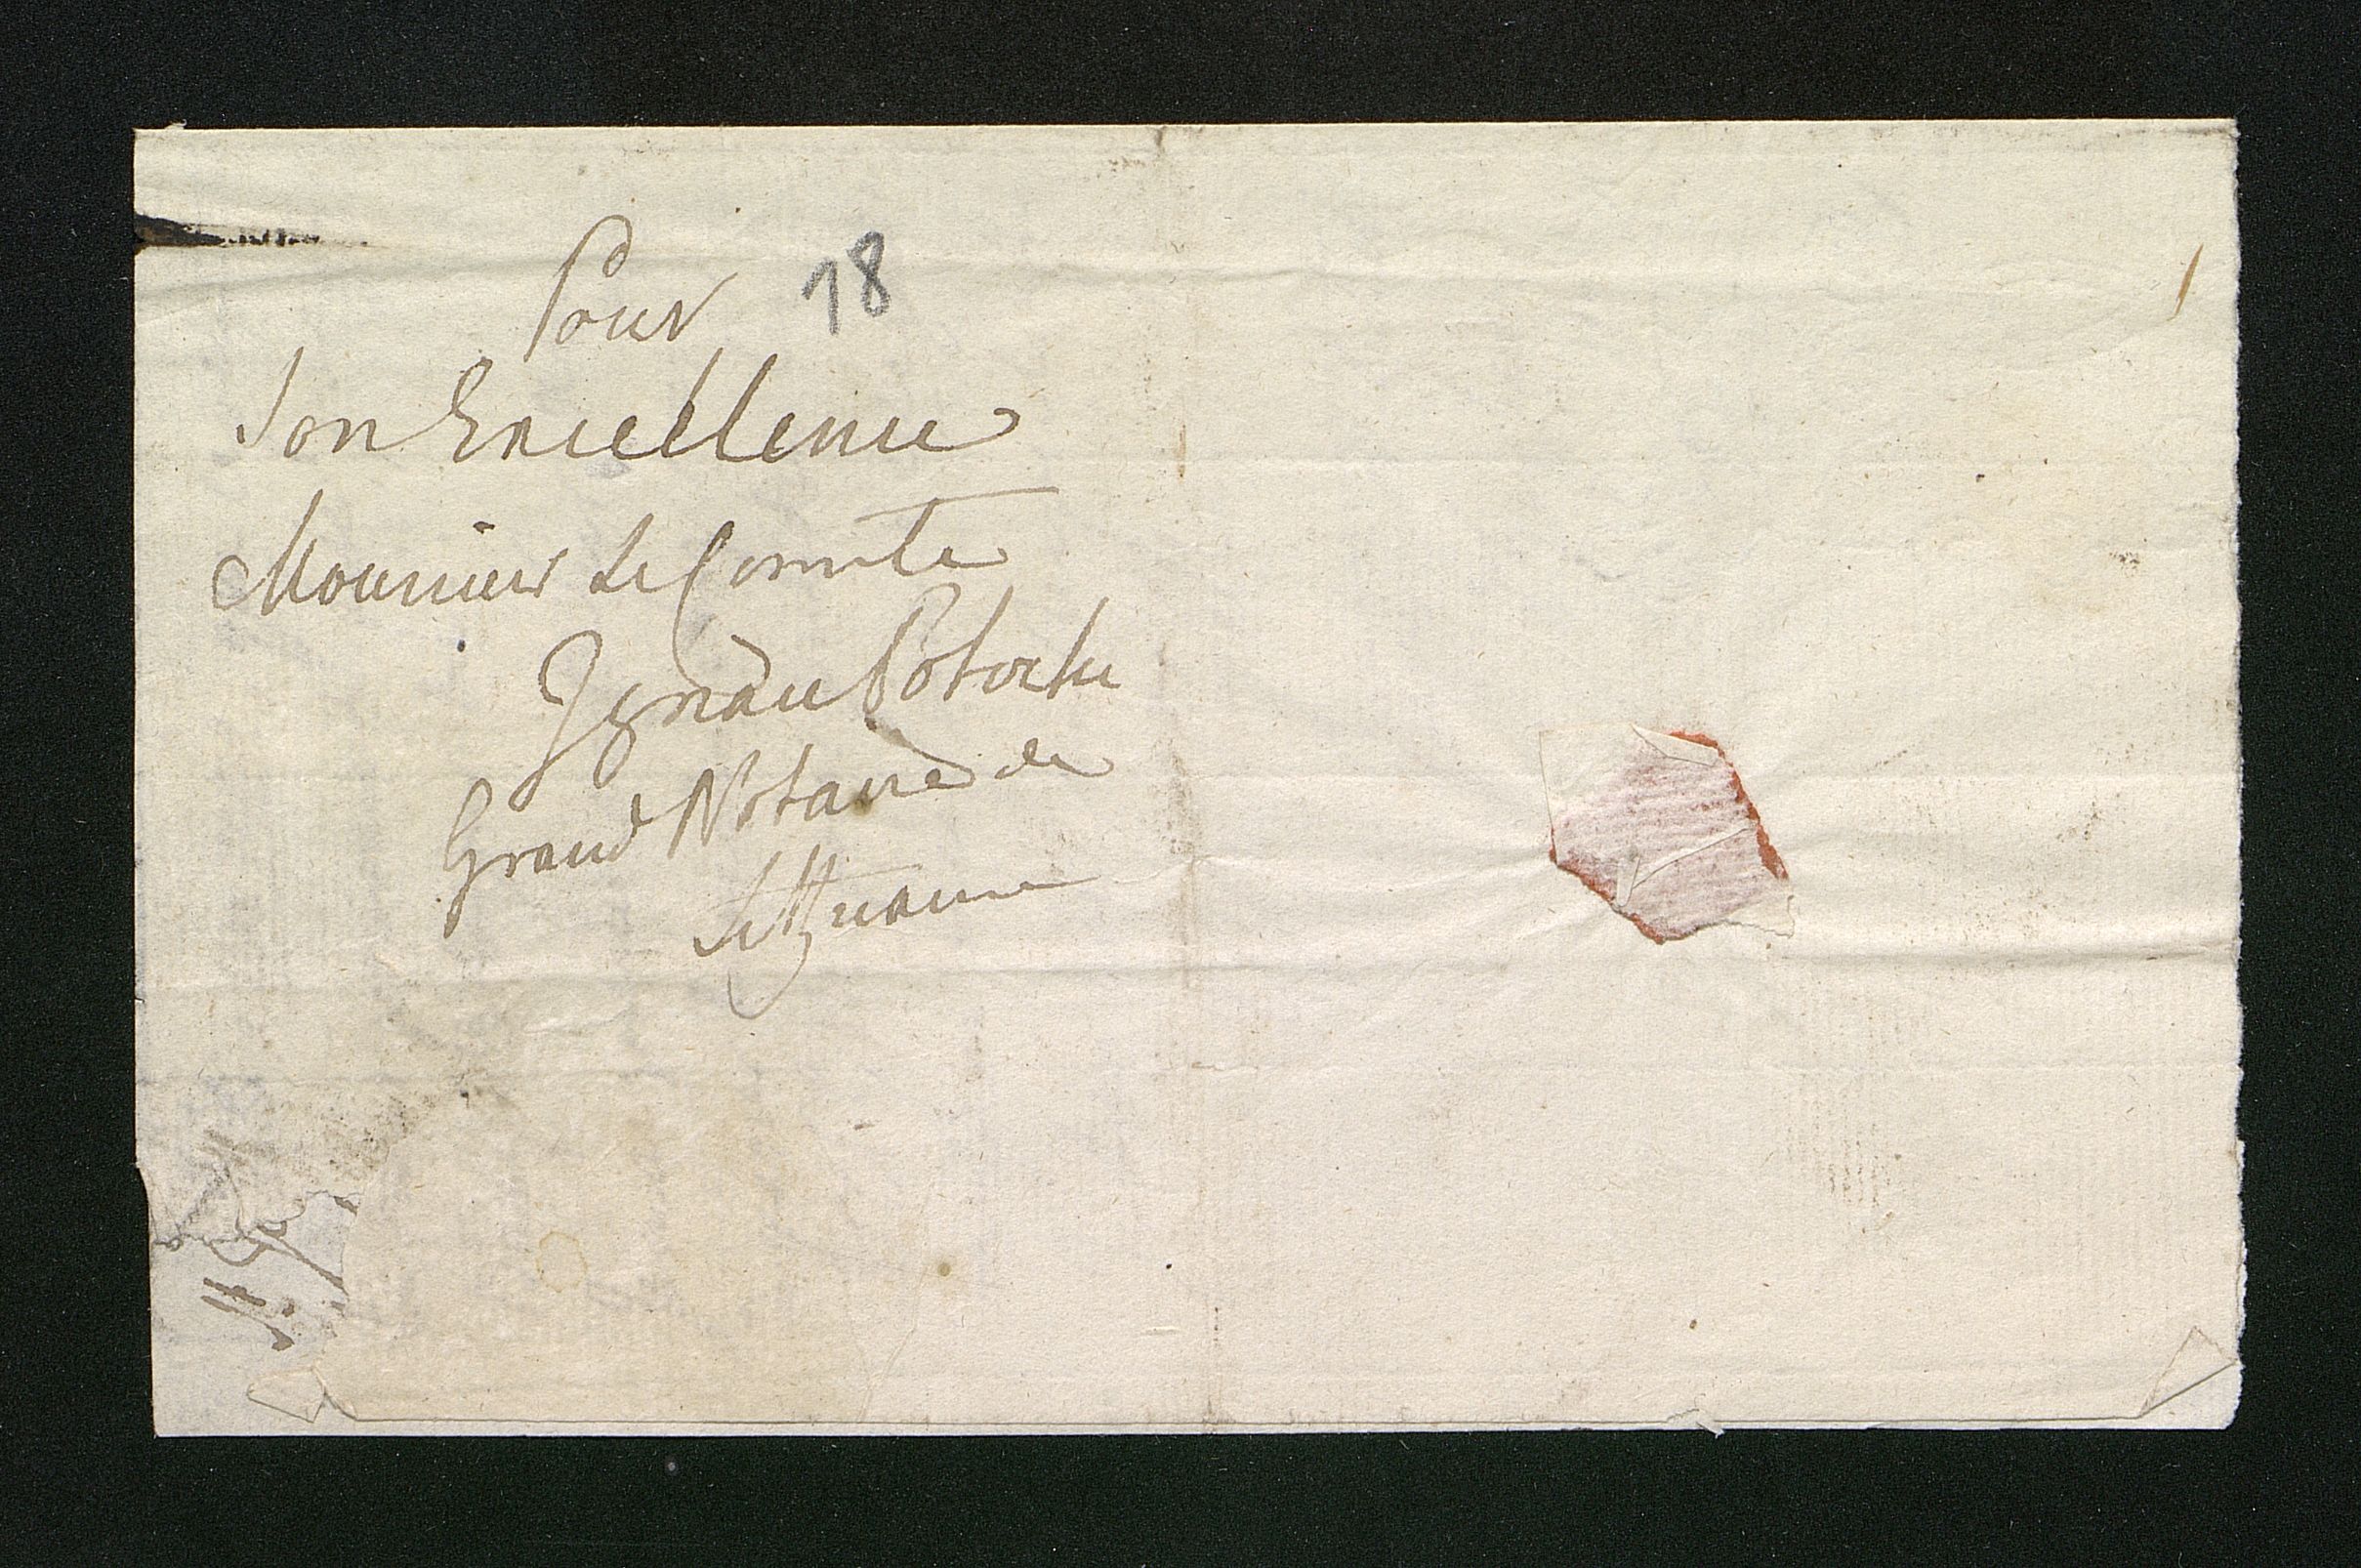 Pour 18
Son Excellence
Monsieur le Comte
Ignace Potocki
Grand Notaire de
Littuanie